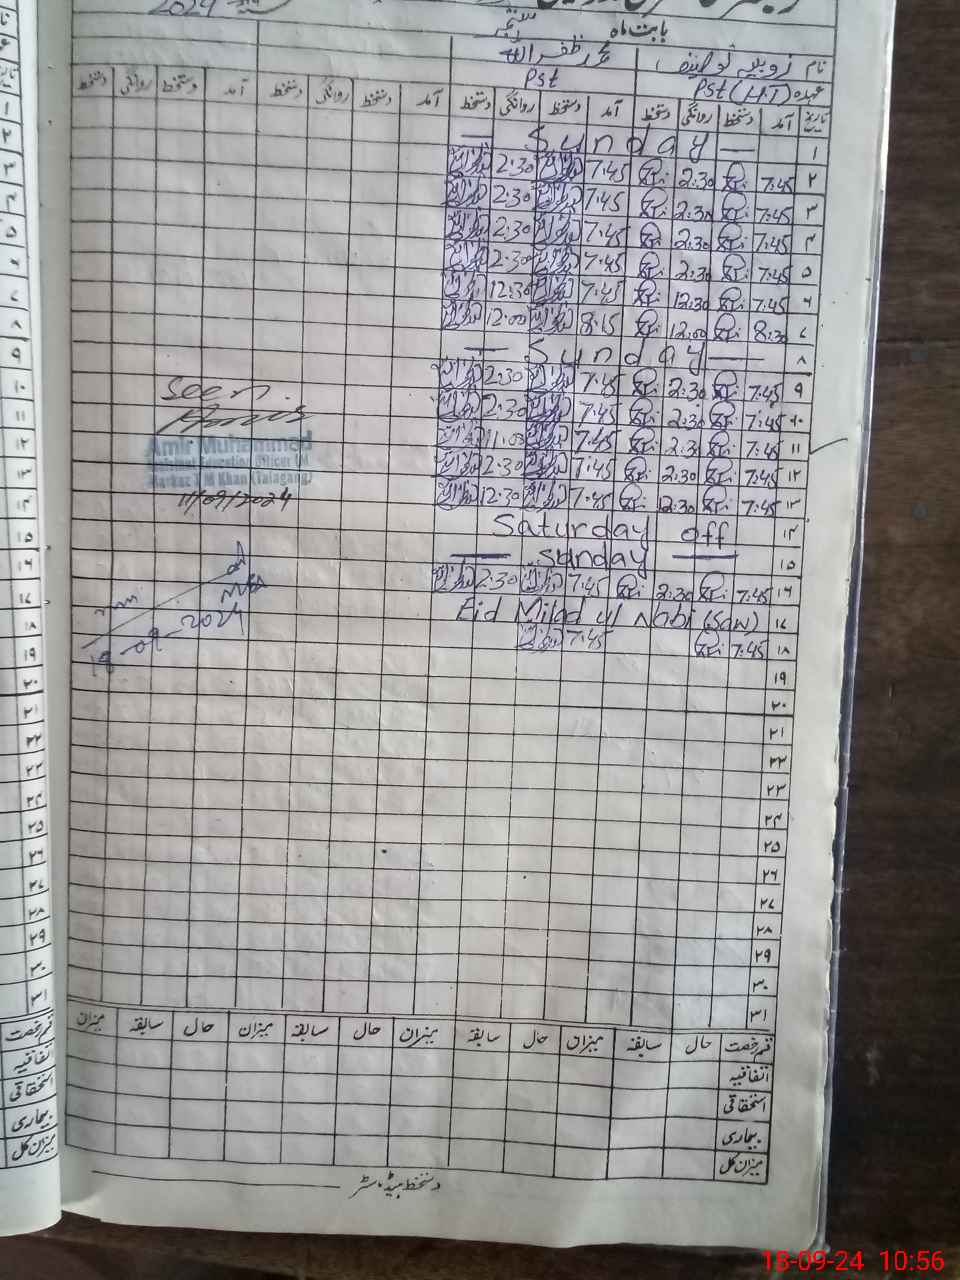 2024
بابت ماہ ستمبر
نام زوبیہ محمد ظفر اللہ
عہدہ Pst (H.T) Pst
تاریخ آمد دستخط روانگی دستخط آمد دستخط روانگی دستخط آمد دستخط روانگی دستخط آمد دستخط روانگی دستخط
۱ — Sunday —
۲ 7:45 2:30 7:45 2:30
۳ 7:45 2:30 7:45 2:30
۴ 7:45 2:30 7:45 2:30
۵ 7:45 2:30 7:45 2:30
۶ 7:45 12:30 7:45 12:30
۷ 8:30 12:00 8:15 12:00
۸ — Sunday —
۹ 7:45 2:30 7:45 2:30
۱۰ 7:45 2:30 7:45 2:30
۱۱ 7:45 2:30 7:45 11:00
۱۲ 7:45 2:30 7:45 2:30
۱۳ 7:45 12:30 7:45 12:30
۱۴ Saturday off
۱۵ — Sunday —
۱۶ 7:45 2:30 7:45 2:30
۱۷ Eid Milad ul Nabi (SAW)
۱۸ 7:45 7:45
۱۹
۲۰
۲۱
۲۲
۲۳
۲۴
۲۵
۲۶
۲۷
۲۸
۲۹
۳۰
۳۱
Seen.
Amir Muhammed
Assistant Education Officer (M)
Markaz T M Khan (Talagang)
11/09/2024
MEA
18-09-2024
قسم رخصت حال سابقہ میزان حال سابقہ میزان حال سابقہ میزان حال سابقہ میزان
اتفاقیہ
استحقاقی
بیماری
میزان کل
دستخط ہیڈ ماسٹر
قسم رخصت
اتفاقیہ
استحقاقی
بیماری
میزان کل
18-09-24 10:56